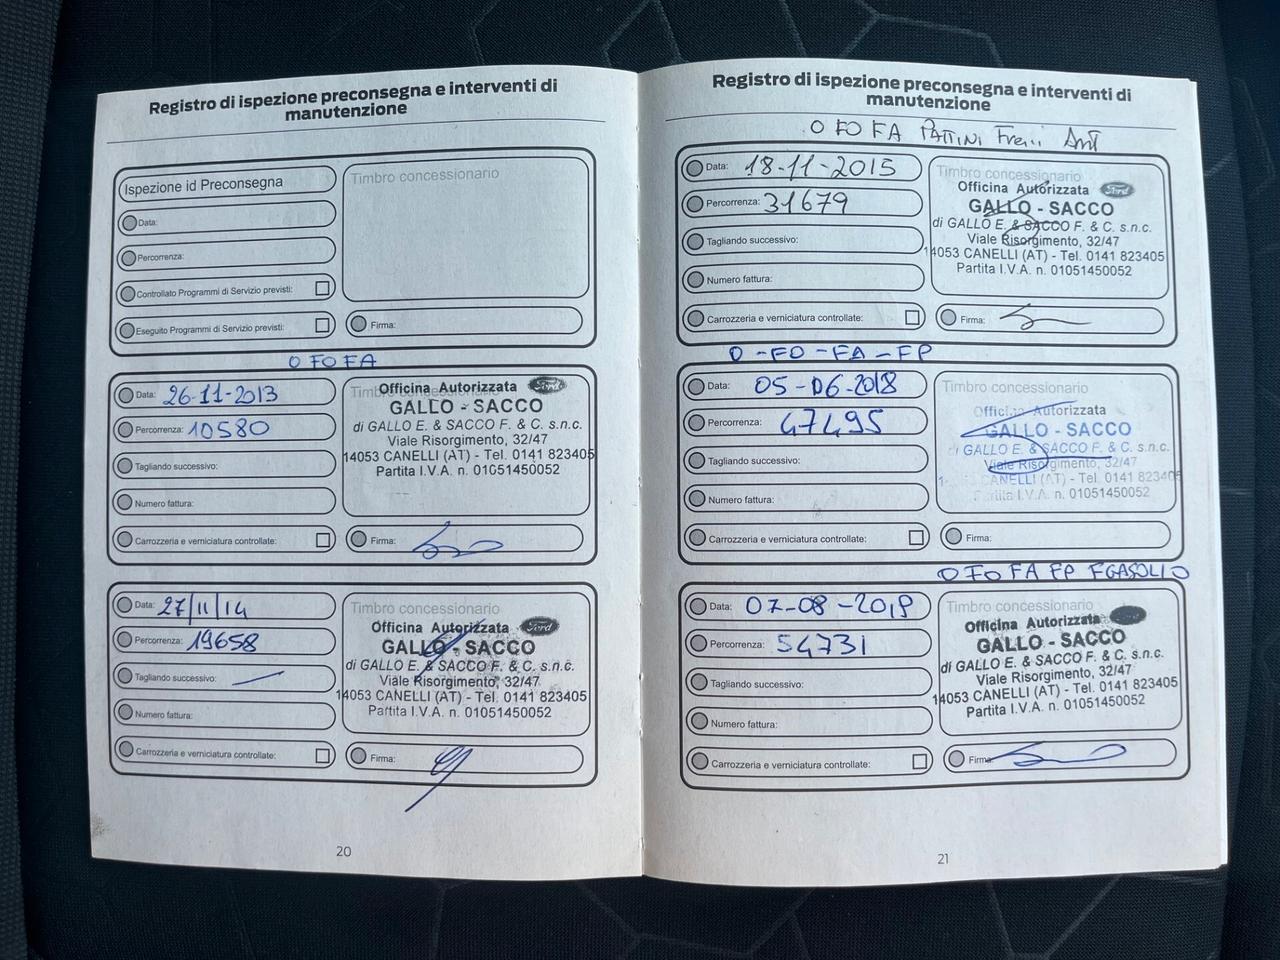 Registro di ispezione preconsegna e interventi di
manutenzione
Ispezione id Preconsegna
Data:
Percorrenza:
Controllato Programmi di Servizio previsti:
Eseguito Programmi di Servizio previsti:
Timbro concessionario
Firma:
O FO FA
Data: 26-11-2013
Percorrenza: 10580
Tagliando successivo:
Numero fattura:
Carrozzeria e verniciatura controllate:
Timbro concessionario
Officina Autorizzata Ford
GALLO - SACCO
di GALLO E. & SACCO F. & C. s.n.c.
Viale Risorgimento, 32/47
14053 CANELLI (AT) - Tel. 0141 823405
Partita I.V.A. n. 01051450052
Firma:
Data: 27/11/14
Percorrenza: 19658
Tagliando successivo:
Numero fattura:
Carrozzeria e verniciatura controllate:
Timbro concessionario
Officina Autorizzata Ford
GALLO - SACCO
di GALLO E. & SACCO F. & C. s.n.c.
Viale Risorgimento, 32/47
14053 CANELLI (AT) - Tel. 0141 823405
Partita I.V.A. n. 01051450052
Firma:
20
Registro di ispezione preconsegna e interventi di
manutenzione
O FO FA PATTINI Freni Ant
Data: 18-11-2015
Percorrenza: 31679
Tagliando successivo:
Numero fattura:
Carrozzeria e verniciatura controllate:
Timbro concessionario
Officina Autorizzata Ford
GALLO - SACCO
di GALLO E. & SACCO F. & C. s.n.c.
Viale Risorgimento, 32/47
14053 CANELLI (AT) - Tel. 0141 823405
Partita I.V.A. n. 01051450052
Firma:
O - FO - FA - FP
Data: 05-06-2018
Percorrenza: 47495
Tagliando successivo:
Numero fattura:
Carrozzeria e verniciatura controllate:
Timbro concessionario
Officina Autorizzata
GALLO - SACCO
di GALLO E. & SACCO F. & C. s.n.c.
Viale Risorgimento, 32/47
CANELLI (AT) - Tel. 0141 823405
Partita I.V.A. n. 01051450052
Firma:
O FO FA FP FGASOLIO
Data: 07-08-2019
Percorrenza: 54731
Tagliando successivo:
Numero fattura:
Carrozzeria e verniciatura controllate:
Timbro concessionario
Officina Autorizzata
GALLO - SACCO
di GALLO E. & SACCO F. & C. s.n.c.
Viale Risorgimento, 32/47
14053 CANELLI (AT) - Tel. 0141 823405
Partita I.V.A. n. 01051450052
Firma:
21